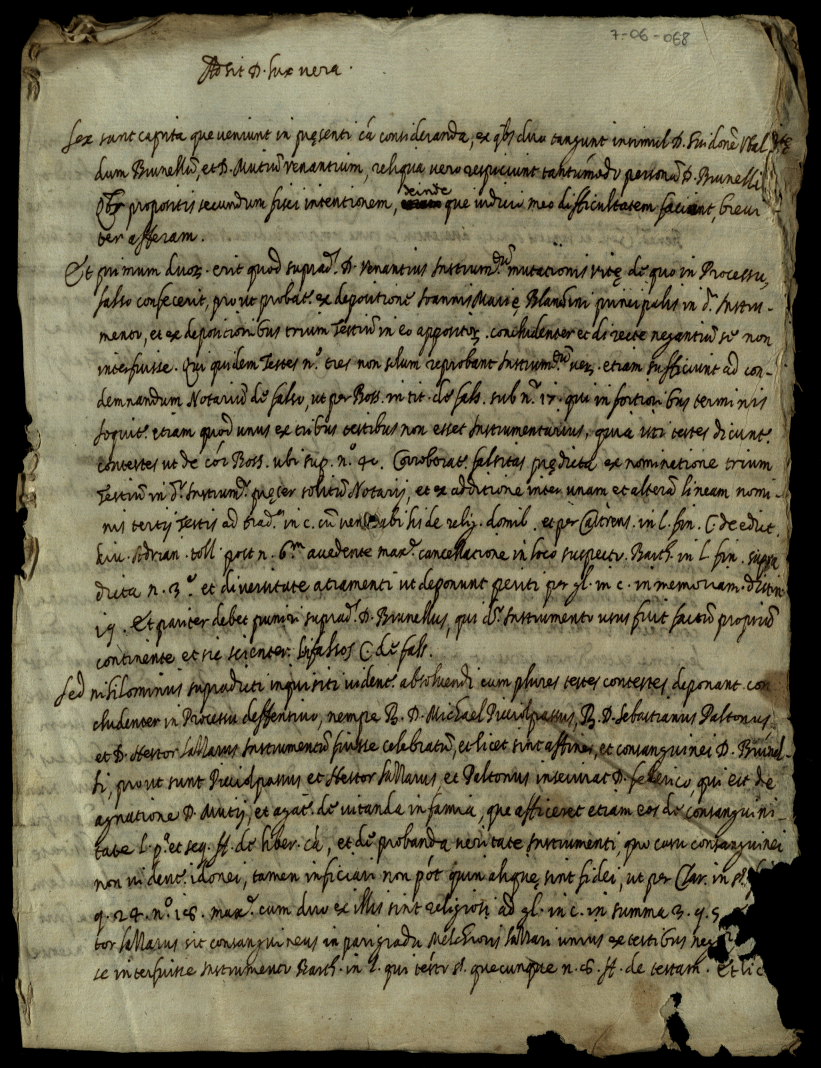 7-06-068
Adsit D. lux vera.
Sex sunt capita que veniunt in pręsenti cā consideranda, ex qbs duo tangunt insimul D. Guidonē Vbal
dum Brunellū, et D. Mutiū Venantium, reliqua vero respiciunt tantūmodo personā D. Brunelli
Qbs propositis secundum fisci intentionem, deinde que iuditio meo difficultatem faciant, brevi
ter afferam.
Et primum duoꝝ. erit quod suprad.s D. Venantius Instrum.tū mutationis vitę de quo in Processu,
falso confecerit, prout probat.r ex depositione Ioannis Marię Blandini principalis in d.o Instru-
mento, et ex depositionibus trium Testiū in eo appositoꝝ. concludenter et directe negantiū se non
interfuisse. Qui quidem Testes n.o tres non solum reprobant Instrum.tū veꝝ. etiam sufficiunt ad con-
demnandum Notariū de falso, ut per Boss. in tit. de fals. sub n.o 17. qui in fortioribus terminis
loquit.r etiam quod unus ex tribus testibus non esset Instrumentarius, quia isti testes dicunt.r
contestes ut de cōi Boss. ubi sup. n.o 42. Corroborat.r falsitas prędicta ex nominatione trium
Testiū in d.o Instrum.o pręter solitū Notarij, et ex additione inter unam et alterā lineam nomi-
nis tertij Testis ad trad.a in c. cū venerabilis de relig. domib. et per Castrens. in l. fin. C de edict.
Div. Adrian. toll. post n. 6.m accedente max.e cancellatione in loco suspecto. Barth. in l. fin. supra
dicta n. 3.o et diversitate atramenti ut deponunt periti per gl. in c. in memoriam. distin
19. Et pariter debet puniri suprad.s D. Brunellus, qui d.o Instrumento usus fuit factū propriū
continente et sic scienter. l. si falsos C. de fals.
Sed nihilominus supradicti inquisiti vident.r absolvendi cum plures testes contestes deponant con
cludenter in Processu deffensivo, nempe R. D. Michael Piccolpassus, R. D. Sebastianus Paltonius
et D. Hestor laMarus Instrumentū fuisse celebratū, et licet sint affines, et consanguinei D. Brunel-
li, prout sunt Piccolpassus et Hestor laMarus et Paltonius inserviat D. federico, qui est de
agnatione D. Mutij, et agat.r de vitanda infamia, que afficeret etiam eos de consanguini
tate l. p.a et seq. ff. de liber. cā, et de probanda veritate Instrumenti quo casu consanguinei
non vident.r idonei, tamen inficiari non pōt quin aliquę sint fidei, ut per Clar. in §. fin
q. 24. n.o 18. max.e cum duo ex illis sint religiosi ad gl. in c. in summa 3. q. 5
tor laMarus sit consanguineus in pari gradu Melchioris laMari unius ex testibus neg
se interfuisse Instrumento Barth. in l. qui testo §. quecunque n. 8. ff. de testam. Et lic